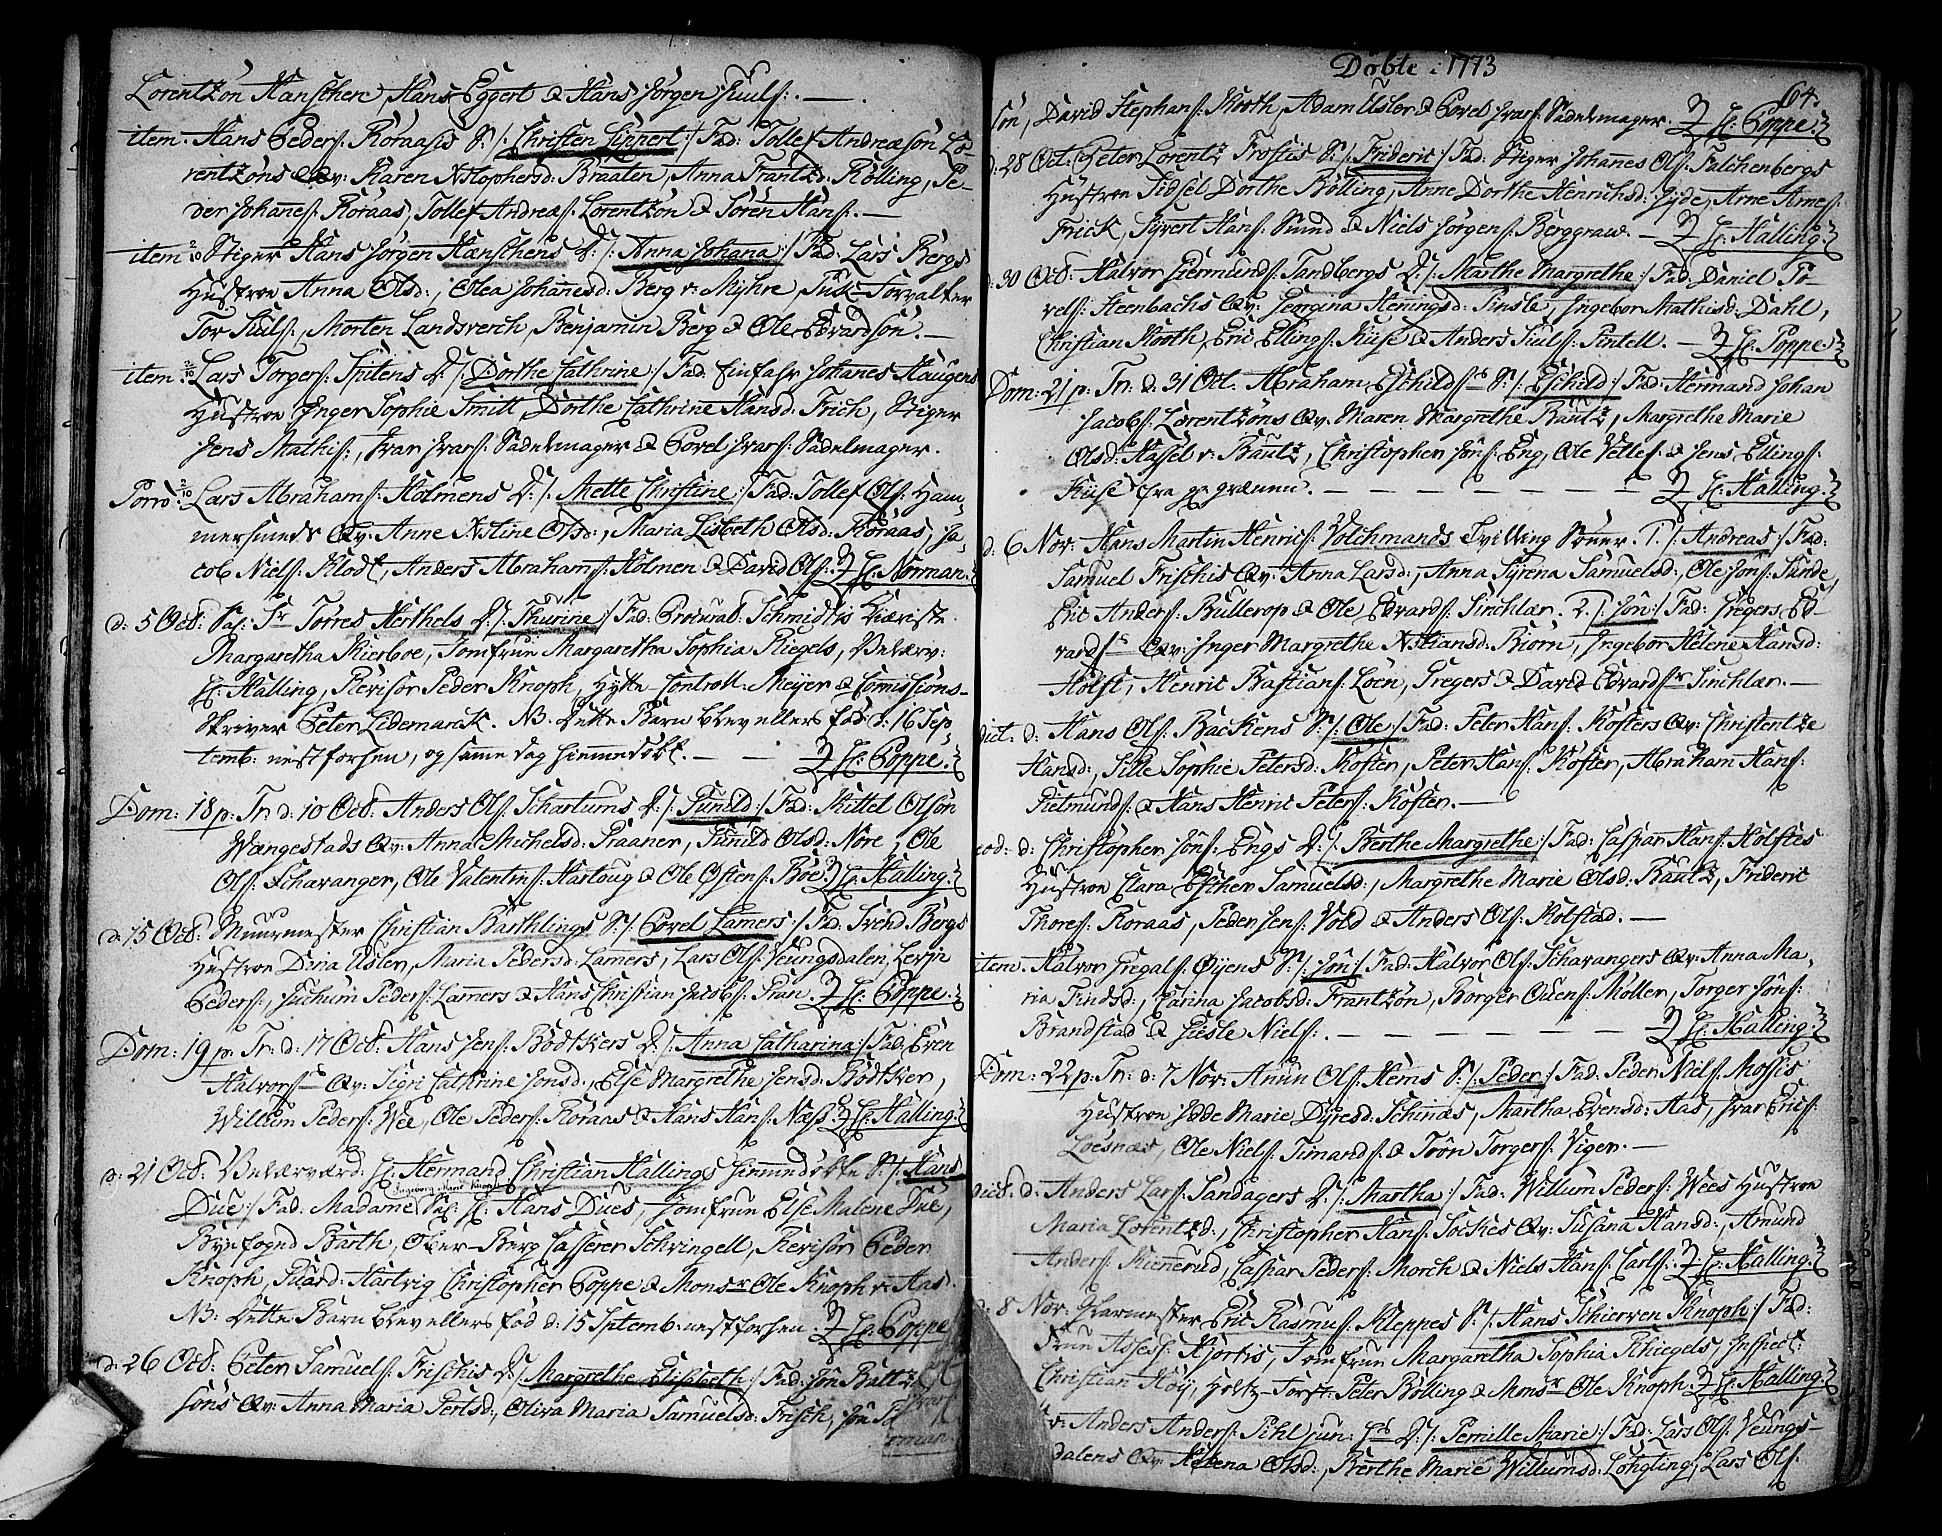 Lorentzon Hanschen, Hans Eggert & Hans Jørgen Juuls:
item. Hans Peders: Roraasis S: /: Christen Lippert :/ Fad: Tollef Andreæson Lo-
rentzons Qv: Karen Xstophersd: Braaten, Anna Frantzd: Rolling, Pe-
der Johanes: Roraas, Tollef Andreæs: Lorentzon & Søren Hans:
item Stiger Hans Jørgen Hanschens D: /: Anna Johana :/ Fad: Lars Bergs
Hustroe Anna Olsd:, Olea Johanesd: Berg v: Myhre, Forvalter
Tor Juuls:, Morten Landsverch, Benjamin Berg & Ole Edvardson.
item: Lars Torgers: Spitens D: /: Dorthe Cathrine :/ Fad: Johanes Haugens
Hustroe Inger Sophie Smitt, Dorthe Cathrine Hansd: Frich, Stiger
Jens Mathis:, Ivar Ivars: Sadelmager & Povel Ivars: Sadelmager.
Porro: Lars Abrahams: Holmens D: /: Mette Christine :/ Fad: Tollef Ols: Ham-
mersmeds Qv: Anne Xstine Olsd:, Maria Lisbeth Olsd: Roraas, Ja-
cob Niels: Klodt, Anders Abrahams: Holmen & David Ols: H: Norman.
d: 5 Oct: Sal: Sr Torres Hertels D: /: Thurine :/ Fad: Procurat: Schmidts Kiæriste
Margaretha Kierboe, Jomfrue Margaretha Sophia Riegels, Velærv:
H: Halling, Revisor Peder Knoph, Hytte-Controll: Meyer & Comissions-
Skriver Peter Lidemarck. NB: Dette Barn blev ellers fød d: 16 Sep-
temb: nestforhen, og samme dag hiemmedøbt. H: Poppe.
Dom: 18 p: Tr: d: 10 Oct: Anders Ols: Scharturns D: /: Gunild :/ Fad: Kittel Olson
Wængestads Qv: Anna Michelsd: Traaner, Gunild Olsd: Nore, Ole
Ols: Schavanger, Ole Valentins: Hartoug & Ole Østens: Bøe. H: Halling.
d: 15 Oct: Muurmester Christian Barthlings S: /: Povel Lamers :/ Fad: Svend Bergs
Hustroe Dina Usler, Maria Pedersd: Lamers, Lars Ols: Jeungsdalen,
Peders:, Jochum Peders: Lamers & Hans Christian Jacobs: Pran. H: Poppe.
Dom: 19 p: Tr: d: 17 Oct: Hans Jens: Bødtkers D: /: Anna Catharina :/ Fad: Even
Halvors: Qv: Sigri Cathrine Jonsd:, Else Margrethe Jensd: Bødtker,
Willum Peders: Wee, Ole Peders: Roraas & Hans Hans: Næss. H: Halling.
d: 21 Oct: Velærværd: H: Hermand Christian Hallings hiemmedøbte S: /: Hans
Due :/ Fad: Madame Ingeborg Marie Knoph Sal: H: Hans Dues, Jomfrue Else Malene Due,
Byefogd Barth, Ober-Berg Casserer Schvingell, Revisor Peder
Knoph, Stud: Hartvig Christopher Poppe & Monsr Ole Knoph v: And.
NB: Dette Barn blev ellers fød d: 15 Septemb: nestforhen. H: Poppe
d: 26 Oct: Peter Samuels: Frischis D: /: Margrethe Elisabeth :/ Fad: Jon Baltz
sons Qv: Anna Maria Pertsd:, Oliva Maria Samuelsd: Frisch, Jon
Døbte i 1773
64.
son, David Stephans: North, Adam Usler & Povel Ivars: Sadelmager. H: Poppe.
d: 28 Oct: Peter Lorentz Frostis S: /: Frideric :/ Fad: Stiger Johanes Ols: Falchenbergs
Hustroe Sidsel Dorthe Bølling, Anne Dorthe Henrichsd: Gyde, Arne Arnes:
Frick, Syvert Hans: Sund & Niels Jørgens: Berggraw. H: Halling.
d: 30 Oct: Halvor Giermunds: Sandbergs D: /: Marthe Margrethe :/ Fad: Daniel Po-
vels: Steenbachs Qv: Georgina Heningsd: Tinsle, Ingebor Mathisd: Dahl,
Christian North, Eric Ellings: Kiise & Anders Juuls: Pintell. H: Poppe
Dom: 21 p: Tr: d: 31 Oct. Abraham Eschilds: S: /: Eschild :/ Fad: Hermand Johan
Jacobs: Lorentzons Qv: Maren Margrethe Bautz, Margrethe Marie
Olsd: Hassel v: Bautz, Christopher Jons: Eng, Ole Velles: & Jens Ellings:
Kiise fra H: Halling.
d: 6 Nov: Hans Martin Henrics: Volchmands Tvilling Sønner. 1. /: Andreas :/ Fad:
Samuel Frischis Qv: Anna Larsd:, Anna Syrena Samuelsd:, Ole Jons: Sunde,
Eric Anders: Bullerop & Ole Edvards: Sinchlar. 2. /: Jon :/ Fad: Gregers Ed-
vards: Qv: Inger Margrethe Xstiansd: Biorn, Ingebor Helene Hansd:
Holst, Henric Bastians: Loen, Gregers & David Edvards: Sinchlar.
dict. d: Hans Ols: Backens S: /: Ole :/ Fad: Peter Hans: Kosters Qv: Christentze
Hansd:, Sille Sophie Petersd: Koster, Peter Hans: Koster, Abraham Hans:
Pietmunds: & Hans Henric Peters: Koster.
eod: d: Christopher Jons: Engs D: /: Berthe Margrethe :/ Fad: Caspar Hans: Holstes
Hustroe Clara Esther Samuelsd:, Margrethe Marie Olsd: Bautz, Frideric
Thores: Roraas, Peder Jens: Vold & Anders Ols: Kolstad.
item. Halvor Gregas: Øyens S: /: Jon :/ Fad: Halvor Ols: Schavangers Qv: Anna Ma-
ria Findsd:, Carina Jacobsd: Frantzon, Borger Ouens: Moller, Torger Jons:
Brandstad & Giesle Niels: H: Halling.
Dom: 22 p: Tr: d: 7 Nov: Anun Ols: Hems S: /: Peder :/ Fad: Peder Niels: Mossis
Hustroe Hedde Marie Dyresd: Schinæs, Martha Evensd: Aas, Ivar Erics:
Loesnæs, Ole Niels: Timands: & Torn Torgers: Viger.
dict. d: Anders Lars: Sandagers D: /: Martha :/ Fad: Willum Peders: Wees Hustroe
Maria Lorentzd:, Christopher Hans: Sockes Qv: Susana Hansd:, Amund
Anders: Kiennerud, Caspar Peders: Morch & Niels Hans: Carls: H: Halling.
d: 8 Nov: Glarmester Eric Rasmus: Kleppes S: /: Hans Schierven Knoph :/ Fad:
Frue Assess: Hjortis, Jomfrue Margaretha Sophia Rhiegels, Inspect:
Christian Høy, Holtz-Forst: Peter Bolling & Monsr Ole Knoph. H: Halling.
Anders Anders: Pihl jun: D: /: Pernille Marie :/ Fad: Lars Ols: Jeungs-
dalens Qv: Helena Olsd:, Berthe Marie Willumsd: Lohgting, Lars Ols: